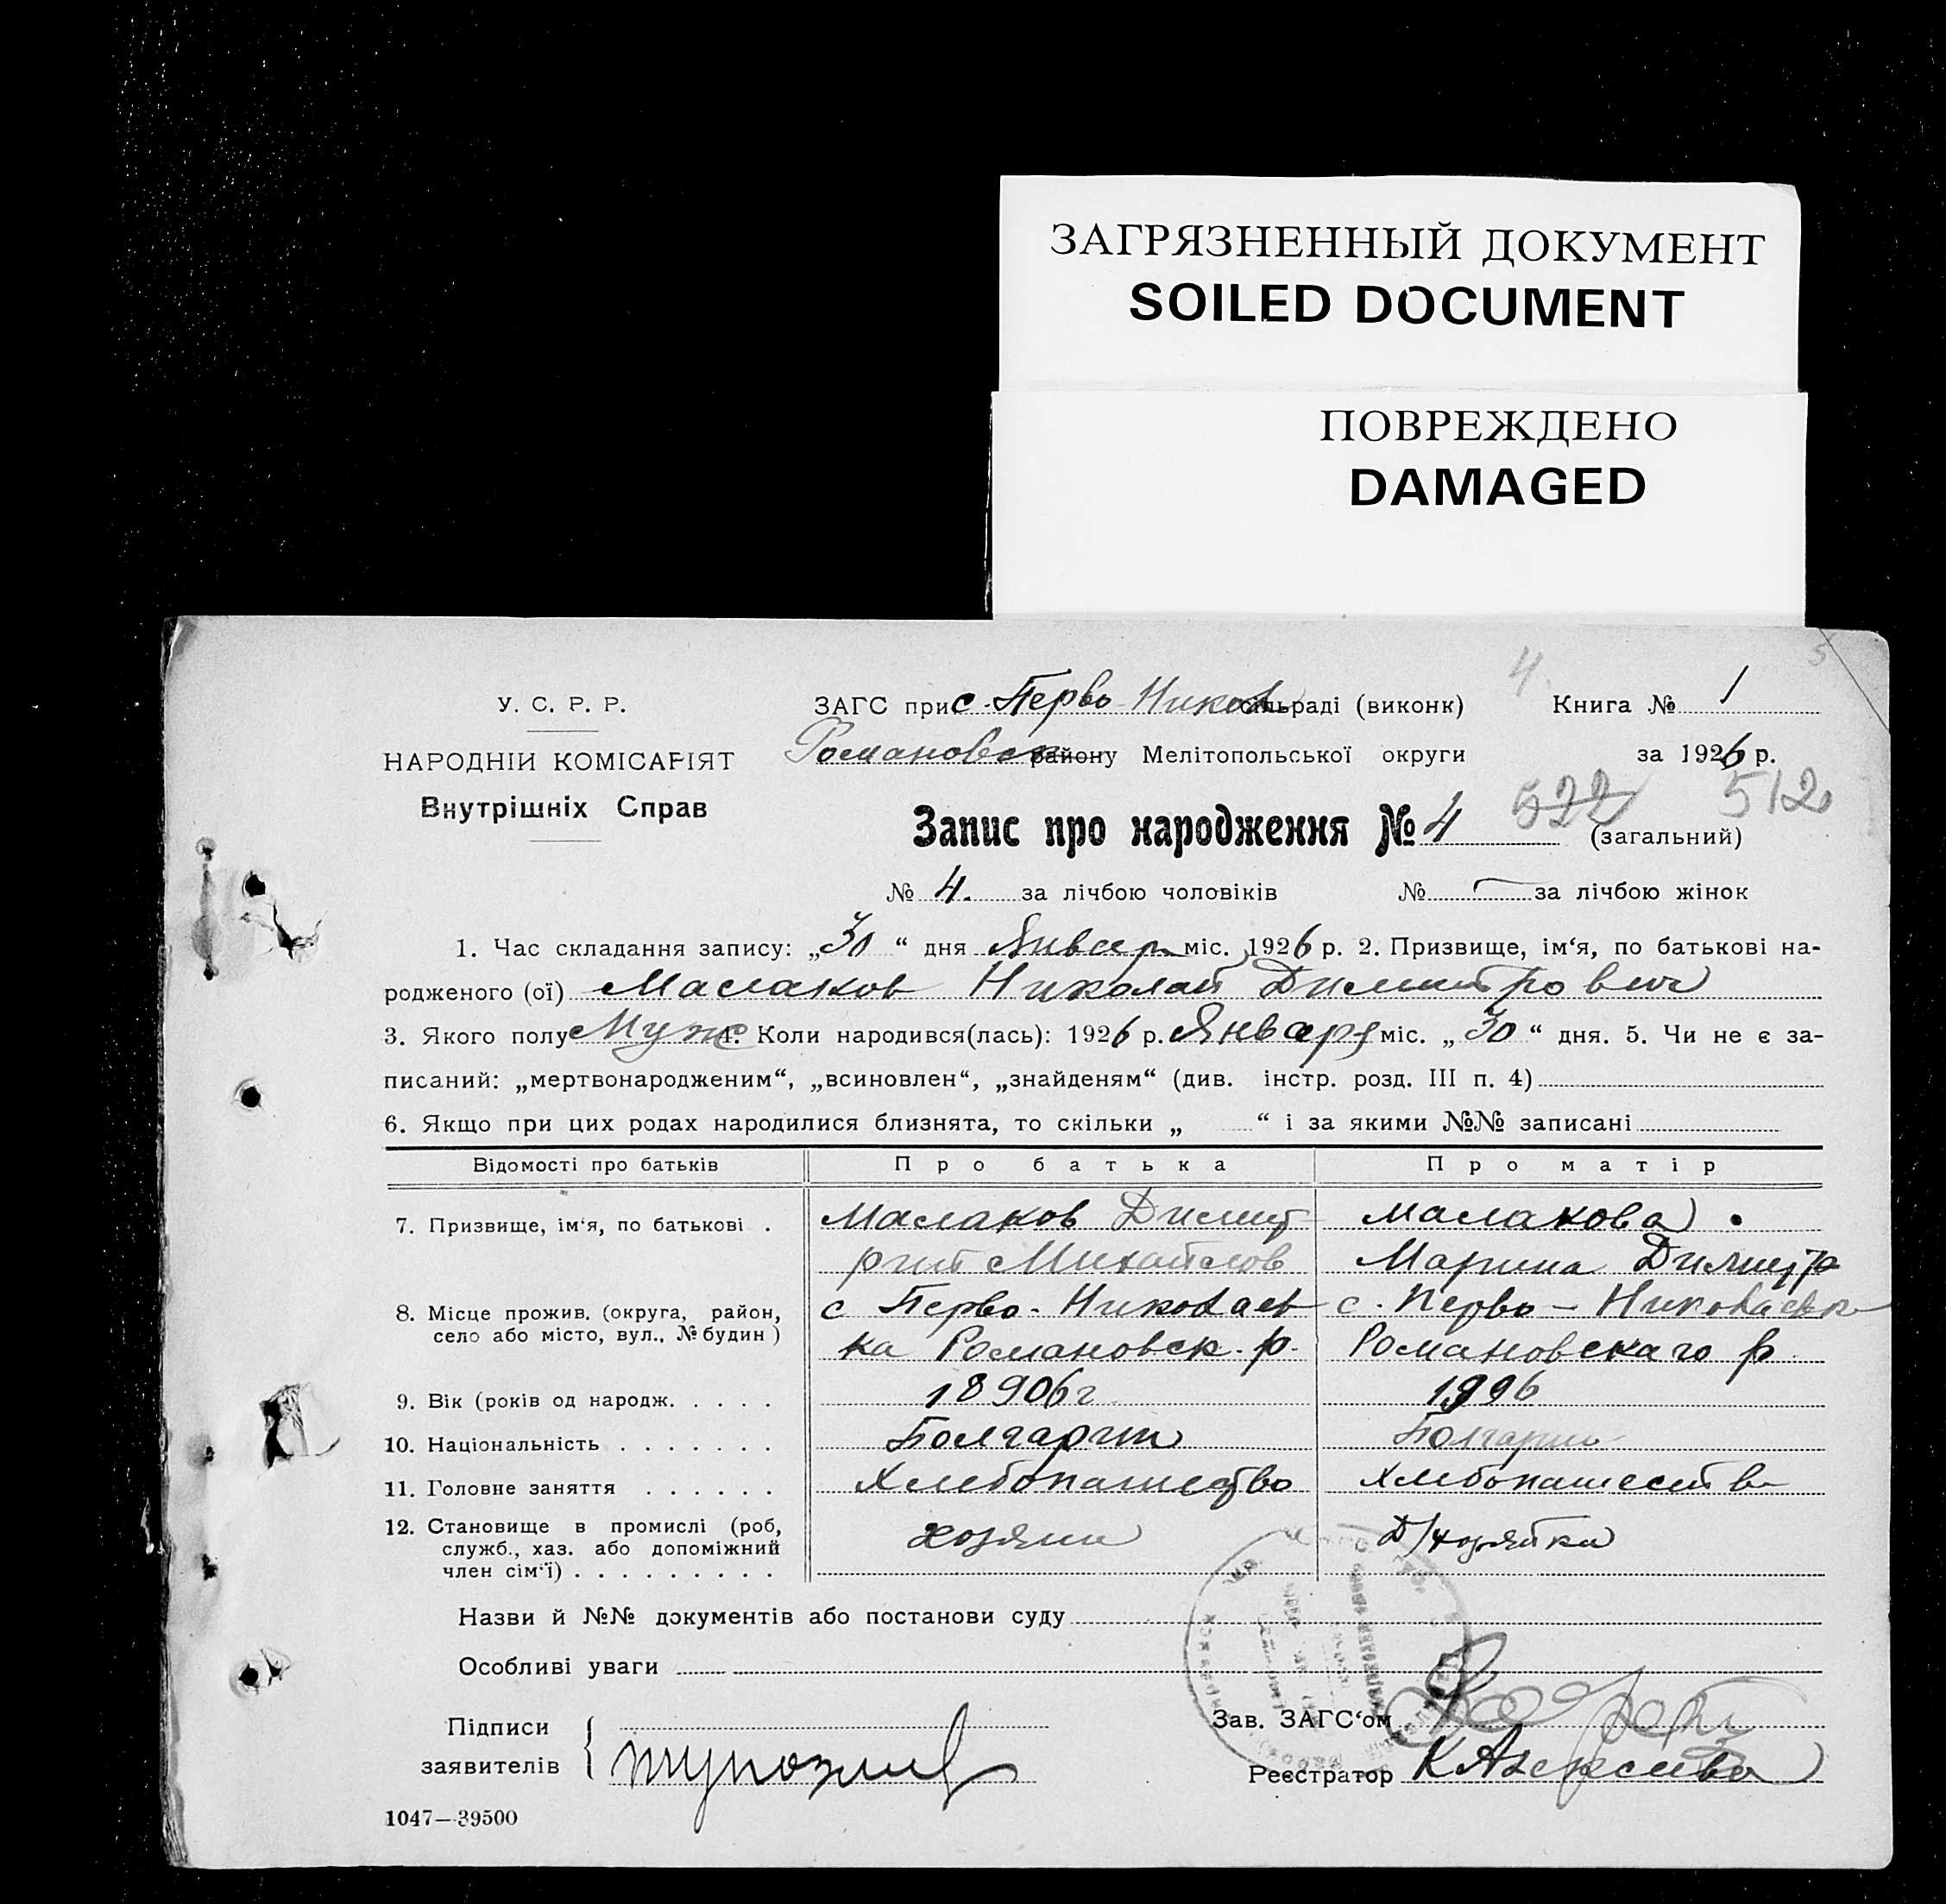 ЗАГРЯЗНЕННЫЙ ДОКУМЕНТ
SOILED DOCUMENT
ПОВРЕЖДЕНО
DAMAGED
4 5
У. С. Р. Р.
НАРОДНІЙ КОМІСАРІЯТ
Внутрішніх Справ
ЗАГС при с. Перво Никол сільраді (виконк) Книга № 1
Романовск району Мелітопольської округи за 1926 р.
522 512
Запис про народження № 4 (загальний)
№ 4. за лічбою чоловіків № — за лічбою жінок
1. Час складання запису: „30 “ дня Январ міс. 1926 р. 2. Призвище, ім‘я, по батькові на-
родженого (ої) Маслаков Николай Димитрович
3. Якого полу Муж 4. Коли народився(лась): 1926 р. Января міс. „ 30 “ дня. 5. Чи не є за-
писаний: „мертвонародженим“, „всиновлен“, „знайденям“ (див. інстр. розд. III п. 4)
6. Якщо при цих родах народилися близнята, то скільки „ “ і за якими №№ записані
Відомості про батьків Про батька Про матір
7. Призвище, ім‘я, по батькові . Маслаков Димит Маслакова
рий Михайлов Марина Димитр
8. Місце прожив. (округа, район, с Перво-Николаев с. Перво-Николаевк
село або місто, вул., № будин) ка Романовск. р. Романовскаго р
9. Вік (років од народж. . . . . 18906г 1996
10. Національність . . . . . . . Болгарин Болгарин
11. Головне заняття . . . . . . Хлебопашество Хлебопашеств
12. Становище в промислі (роб, хозяин Д/хозяйка
служб., хаз. або допоміжний
член сім‘ї) . . . . . . . . .
Назви й №№ документів або постанови суду
Особливі уваги
Підписи
заявителів
Зав. ЗАГС‘ом
Реєстратор
1047—39500